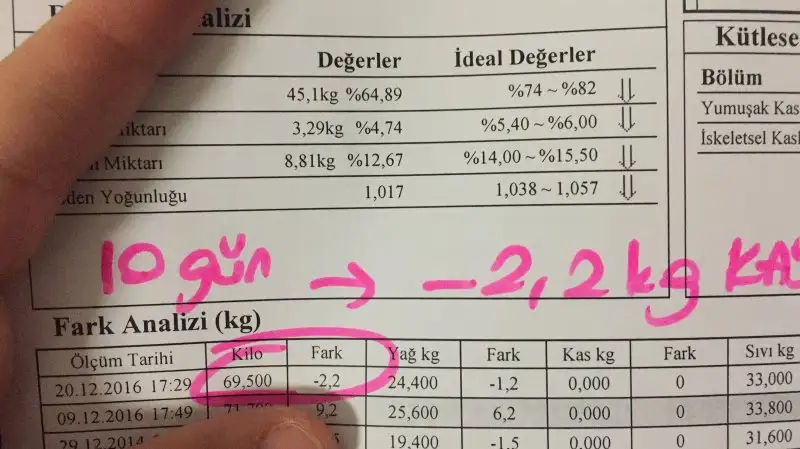 alizi
Değerler İdeal Değerler
45,1kg %64,89 %74 ~ %82
iktarı 3,29kg %4,74 %5,40 ~ %6,00
Miktarı 8,81kg %12,67 %14,00 ~ %15,50
den Yoğunluğu 1,017 1,038 ~ 1,057
Kütlese
Bölüm
Yumuşak Kas
İskeletsel Kasl
10 gün → -2,2 kg KAS
Fark Analizi (kg)
Ölçüm Tarihi Kilo Fark Yağ kg Fark Kas kg Fark Sıvı kg
20.12.2016 17:29 69,500 -2,2 24,400 -1,2 0,000 0 33,000
09.12.2016 17:49 9,2 25,600 6,2 0,000 0 33,800
29.12.2014 19,400 -1,5 0,000 0 31,600